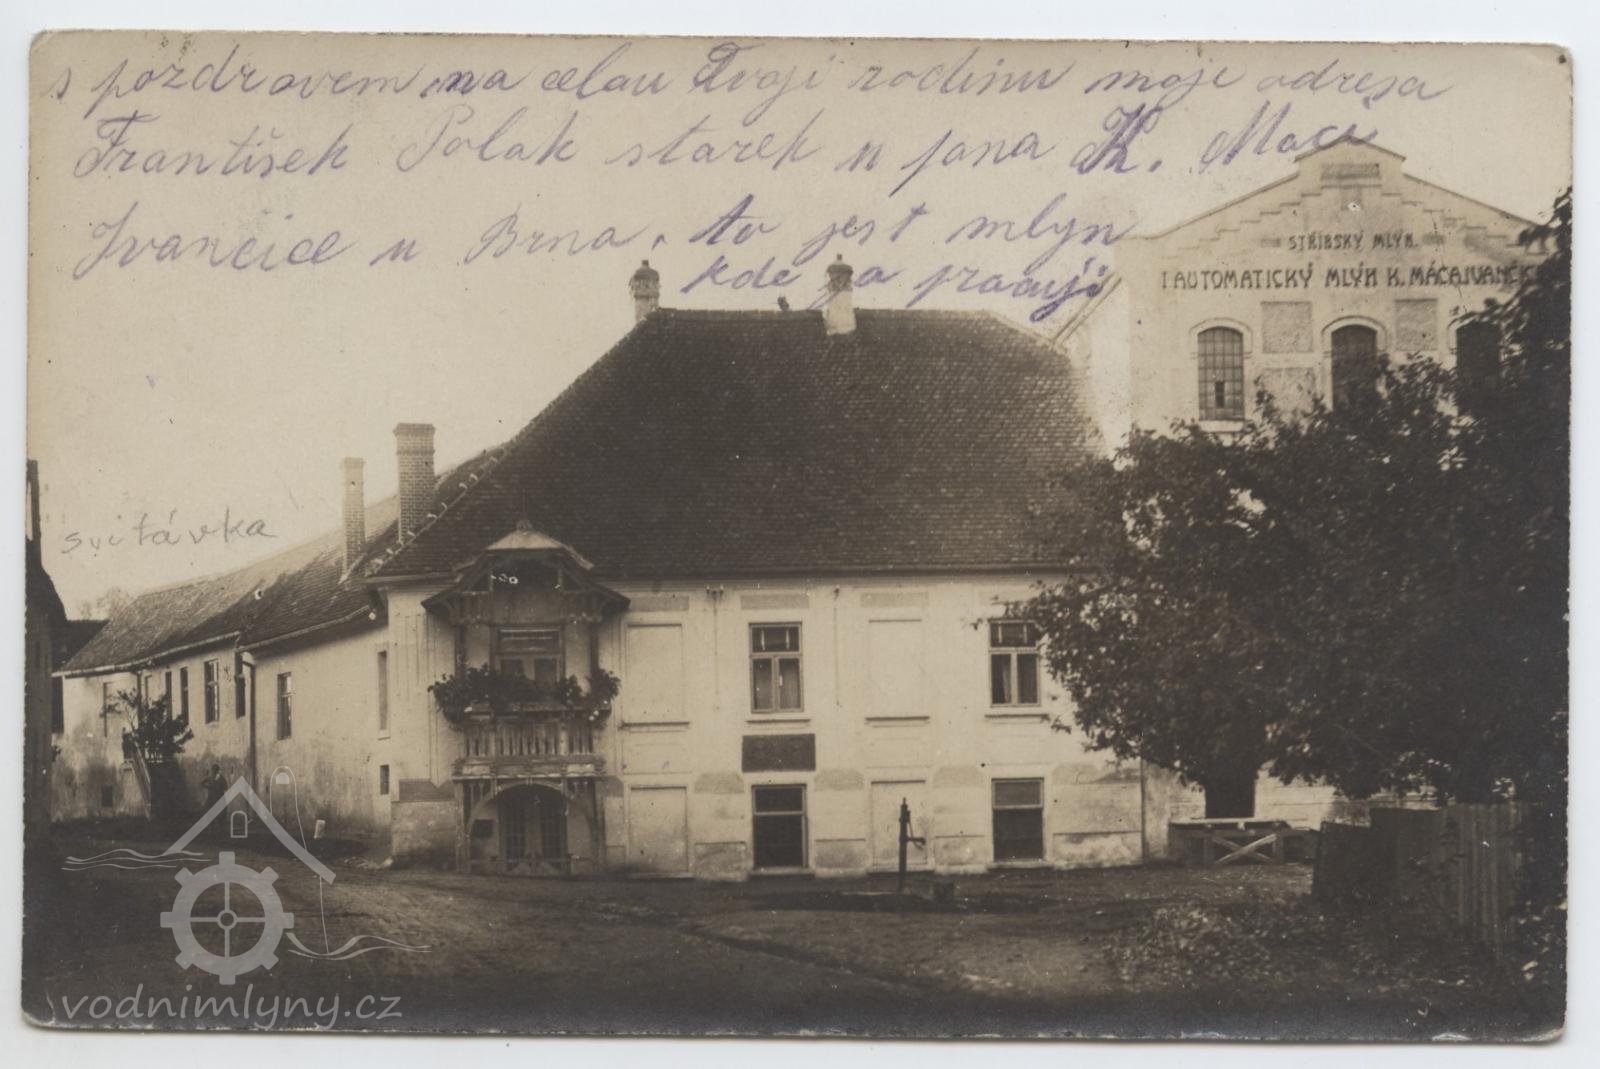 s pozdravem na celau Tvoji rodinu moje adresa
František Polak starek u pana K. Maci
Ivančice u Brna, to jest mlyn
kde ja pracuji
STŘÍBSKÝ MLÝN.
I AUTOMATICKÝ MLÝN K. MÁCA IVANČ
svitávka
vodnimlyny.cz